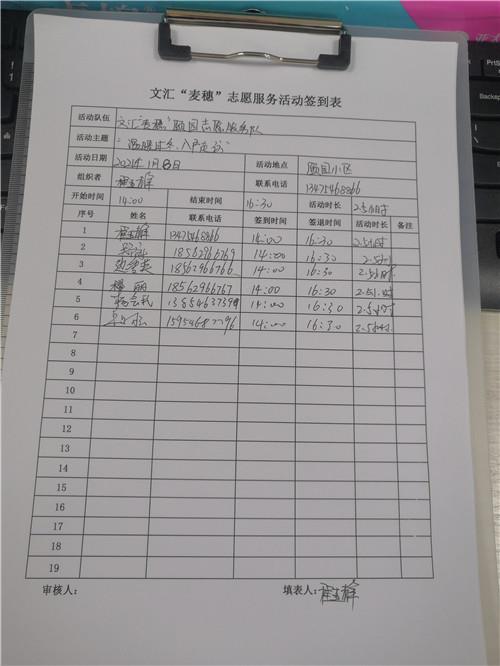 文汇“麦穗”志愿服务活动签到表
活动队伍 文汇“麦穗”颐园志愿服务队
活动主题 “温暖过冬、入户走访”
活动日期 2021年1月8日 活动地点 颐园小区
组织者 联系电话 13475468866
开始时间 14:00 结束时间 16:30 活动时长 2.5小时
序号 姓名 联系电话 签到时间 签退时间 活动时长 备注
1 13475468866 14:00 16:30 2.5小时
2 18562966769 14:00 16:30 2.5小时
3 18562966766 14:00 16:30 2.5小时
4 丽 18562966767 14:00 16:30 2.5小时
5 14:00 16:30 2.5小时
6 14:00 16:30 2.5小时
7
8
9
10
11
12
13
14
15
16
17
18
19
审核人： 填表人：